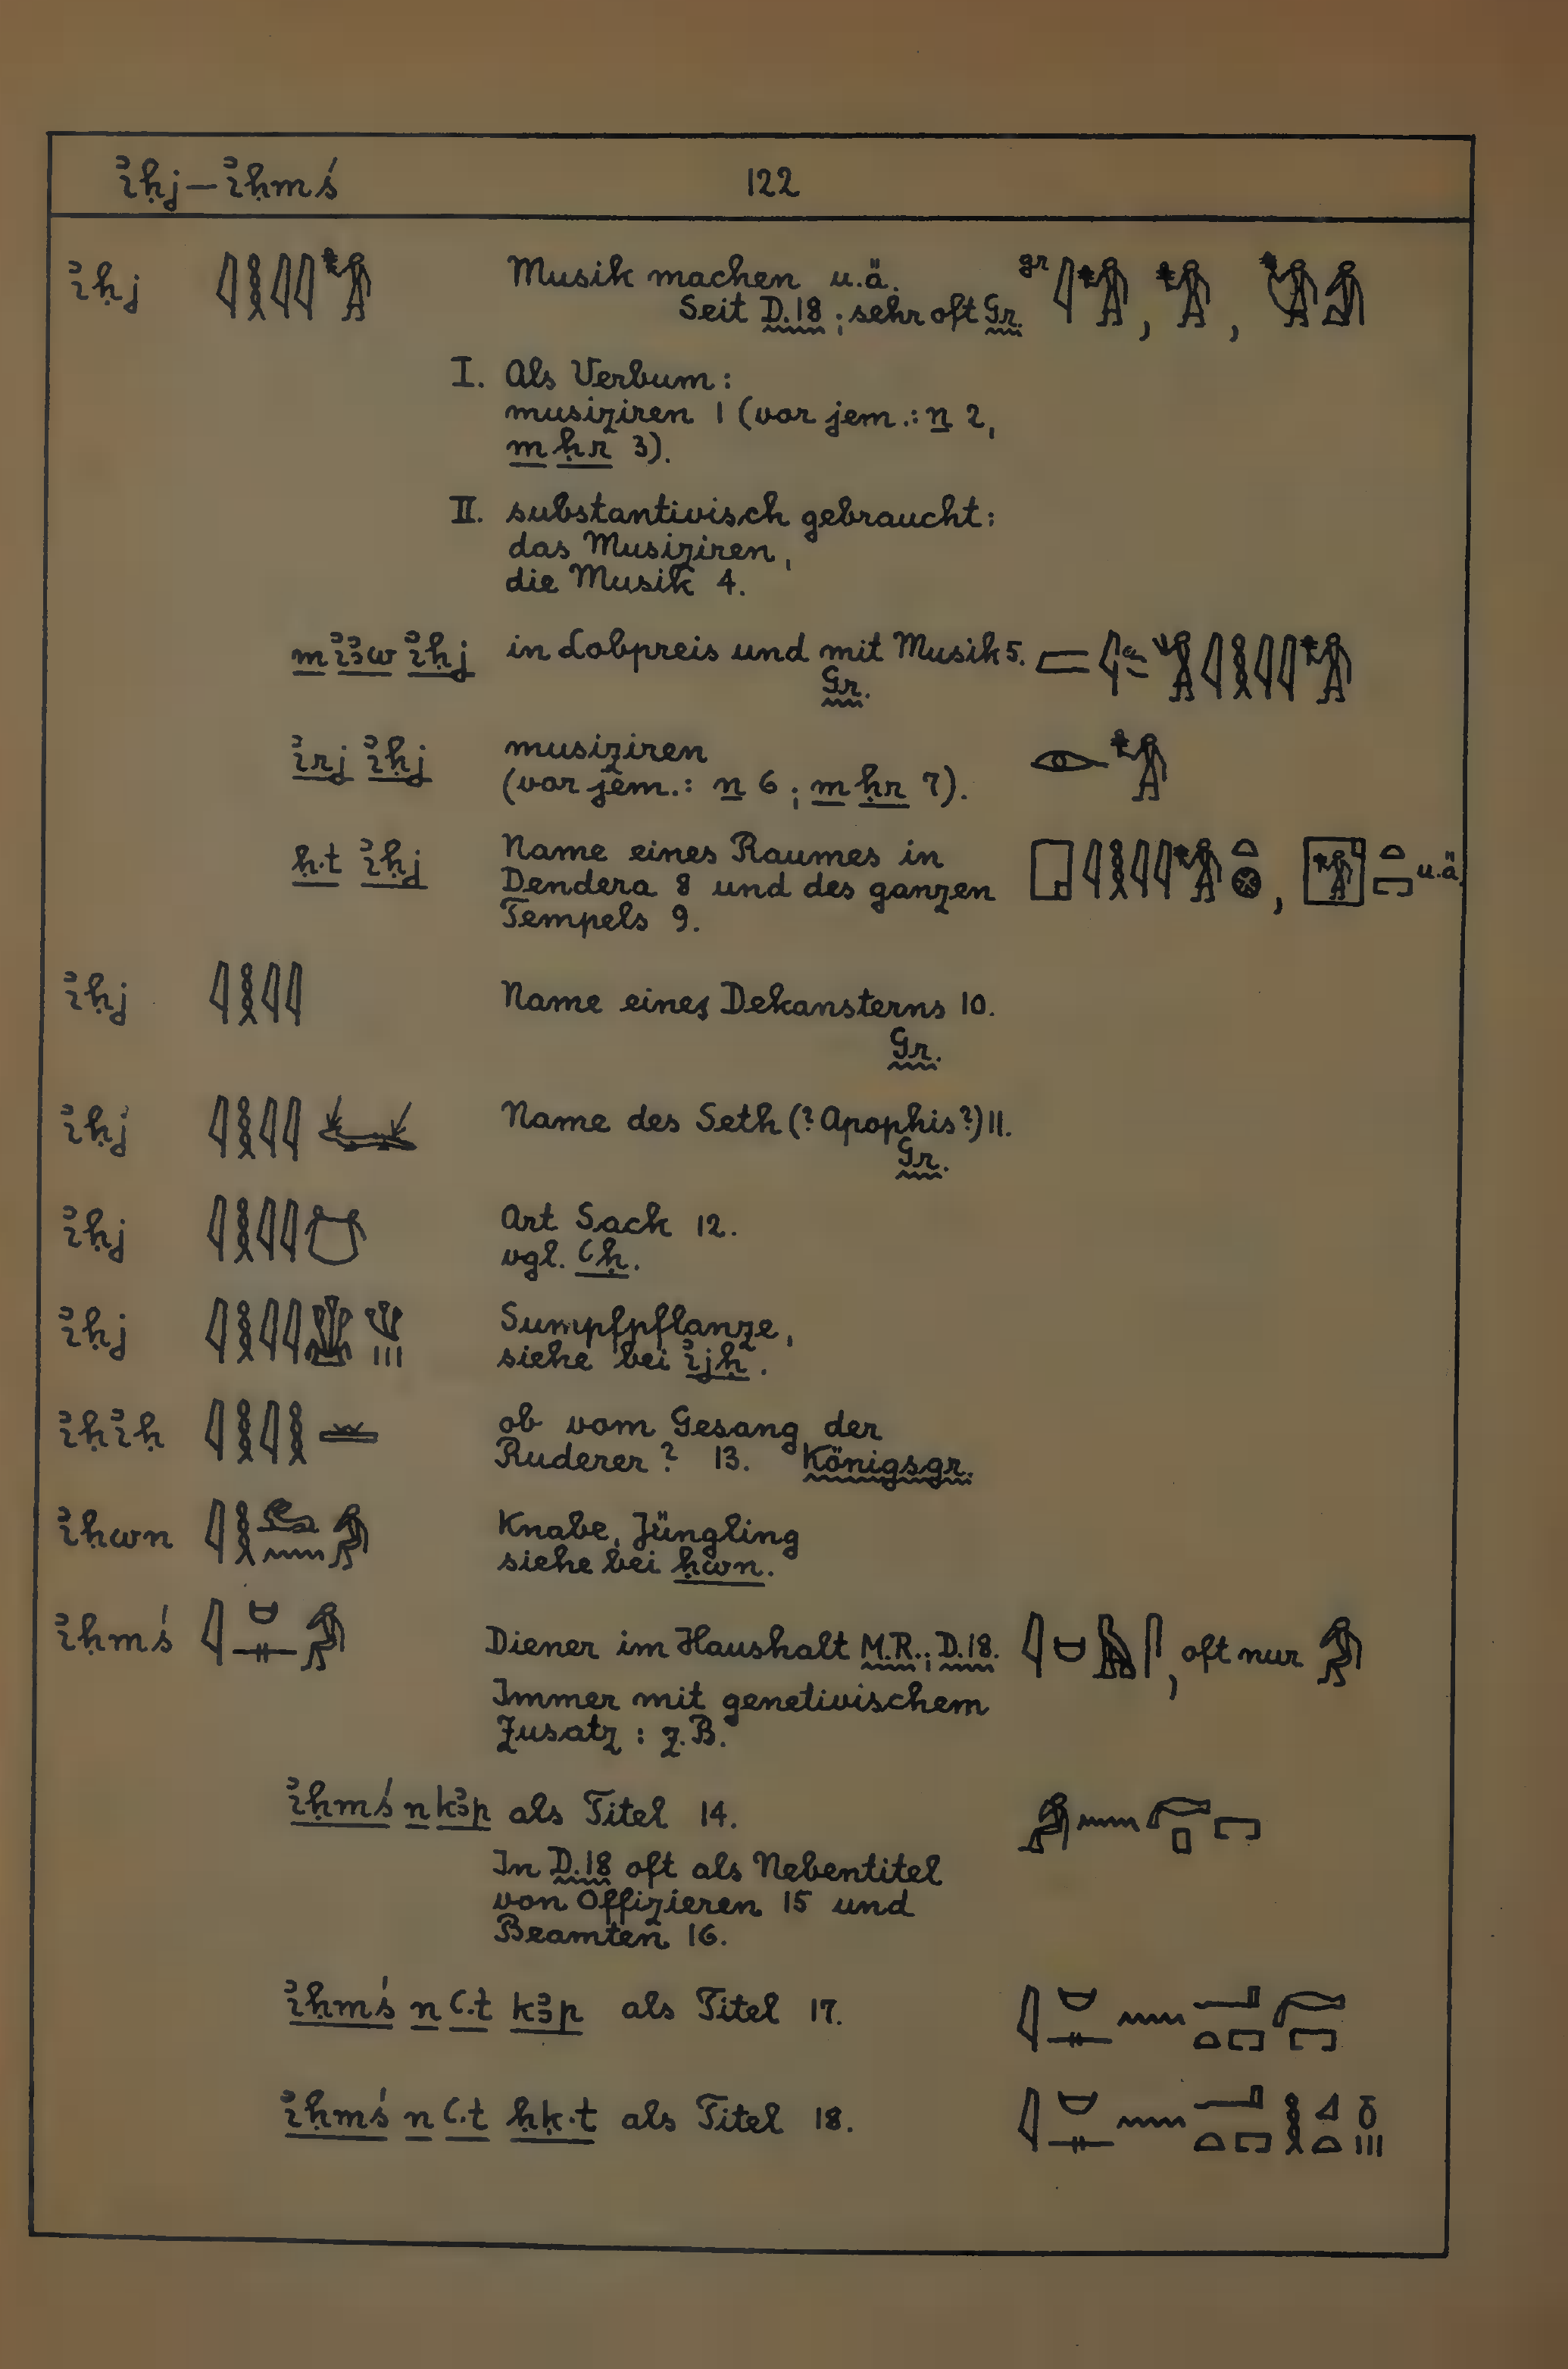 ı͗ḥj – ı͗ḥmś 122
ı͗ḥj Musik machen u.ä. gr
Seit D.18; sehr oft Gr. , ,
I. Als Verbum:
musiziren 1 (vor jem.: n 2,
m ḥr 3).
II. substantivisch gebraucht:
das Musiziren,
die Musik 4.
m ı͗ꜣw ı͗ḥj in Lobpreis und mit Musik 5.
Gr.
ı͗rj ı͗ḥj musiziren
(vor jem.: n 6; m ḥr 7).
ḥ.t ı͗ḥj Name eines Raumes in
Dendera 8 und des ganzen , u.ä.
Tempels 9.
ı͗ḥj Name eines Dekansterns 10.
Gr.
ı͗ḥj Name des Seth (? Apophis?) 11.
Gr.
ı͗ḥj Art Sack 12.
vgl. ꜥḥ.
ı͗ḥj Sumpfpflanze,
siehe bei ı͗jḥ.
ı͗ḥı͗ḥ ob vom Gesang der
Ruderer? 13. Königsgr.
ı͗ḥwn Knabe, Jüngling
siehe bei ḥwn.
ı͗ḥmś Diener im Haushalt M.R.; D.18. , oft nur
Immer mit genetivischem
Zusatz: z.B.
ı͗ḥmś n kꜣp als Titel 14.
In D.18 oft als Nebentitel
von Offizieren 15 und
Beamten 16.
ı͗ḥmś n ꜥ.t kꜣp als Titel 17.
ı͗ḥmś n ꜥ.t ḥḳ.t als Titel 18.